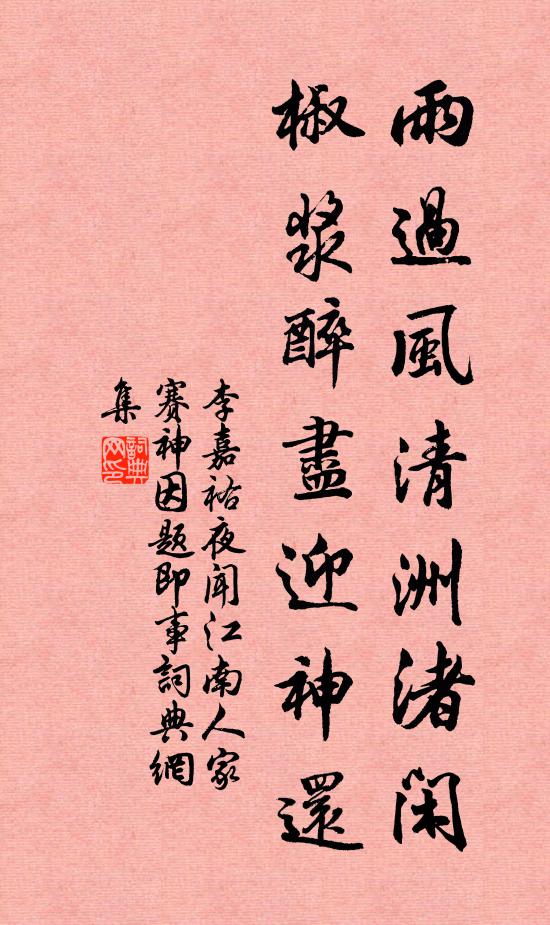 雨過風清洲渚閑
椒漿醉盡迎神還
李嘉祐夜聞江南人家
賽神因題即事詞典網
集
詞典網印